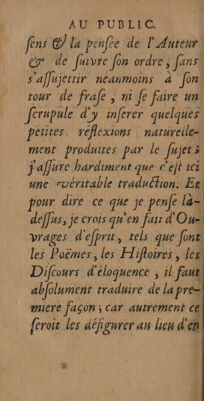 AU PUBLIC.
ſens & la penſée de l'Auteur
& de ſuivre ſon ordre, ſans
s'aſſujettir neanmoins à ſon
tour de fraſe, ni ſe faire un
ſcrupule d'y inſerer quelques
petites reflexions naturelle-
ment produites par le ſujet;
j'aſſure hardiment que c'eſt ici
une veritable traduction. Et
pour dire ce que je penſe là-
deſſus, je crois qu'en fait d'Ou-
vrages d'eſprit, tels que ſont
les Poëmes, les Hiſtoires, les
Diſcours d'éloquence, il faut
abſolument traduire de la pre-
miere façon; car autrement ce
ſeroit les défigurer au lieu d'en